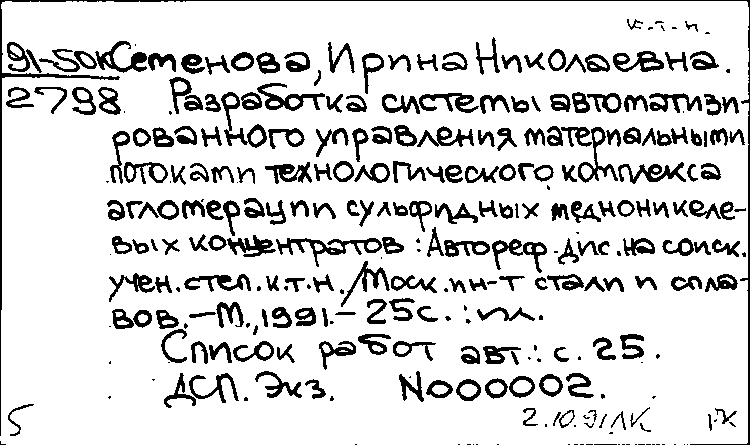 к.т.н.
91-50к Семенова, Ирина Николаевна.
2798 Разработка системы автоматизи-
рованного управления материальными
потоками технологического комплекса
агломерации сульфидных медноникеле-
вых концентратов : Автореф. дис. на соиск.
учен. степ. к.т.н. / Моск. ин-т стали и спла-
вов. — М., 1991. — 25с. : ил.
Список работ авт.: с. 25.
ДСП. Экз. N000002.
5 2.10.91 ЛК